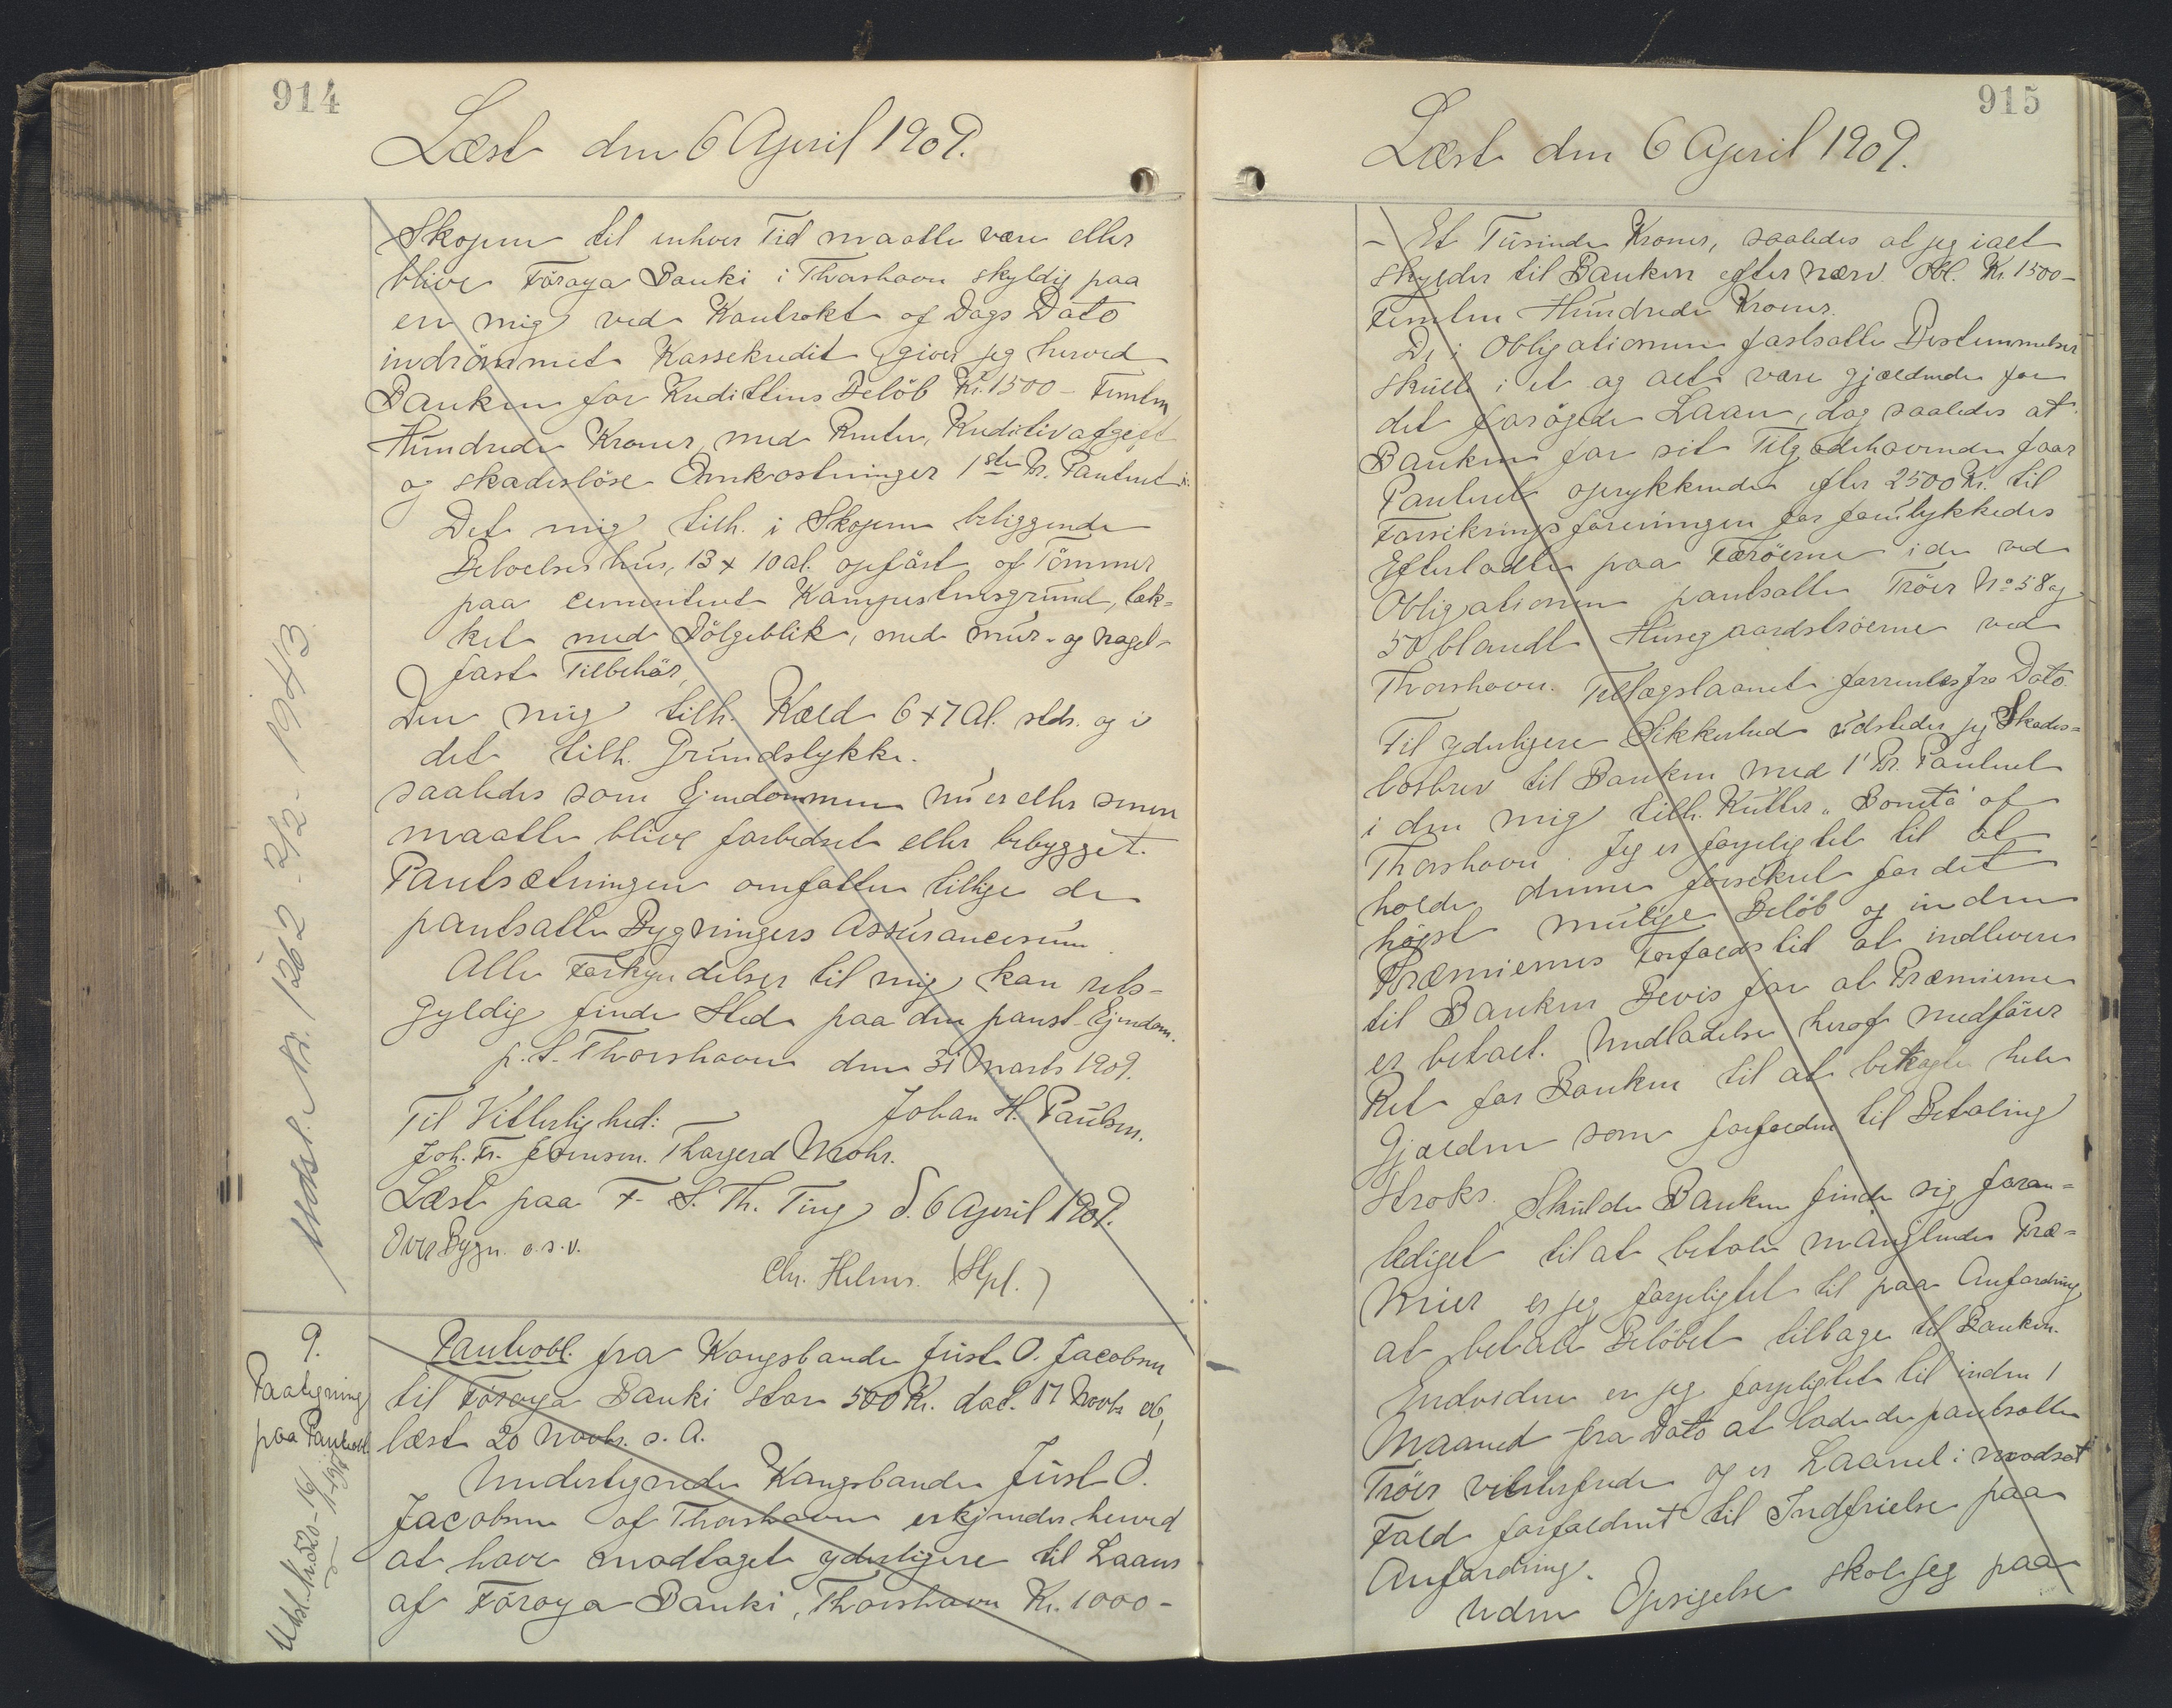 914
Læst den 6 April 1909.
Skopun til enhver Tid maatte være eller
blive Föroya Banki i Thorshavn skyldig paa
en mig ved Kontrakt af Dags Dato
indrömmet Kassekredit giver jeg herved
Banken for Kredittens Belöb Kr. 1500 - Femten
Hundrede Kroner, med Renter, Kreditivafgift
og skadeslöse Omkostninger 1ste Pr. Panteret i:
Det mig tilh. i Skopun beliggende
Beboelseshus, 13 x 10 al. opfört af Tömmer
paa cementeret Kampestensgrund, tæk=
ket med Bölgeblik, med mur- og nagel-
fast Tilbehör,
Den mig tilh. Kæld 6 x 7 Al. stds. og i
det tilh. Grundstykke.
saaledes som Ejendommen nu er eller senere
maatte blive forbedret eller bebygget.
Pantsætningen omfatter tillige de
pantsatte Bygningers Assurancesum.
Alle Forkyndelser til mig kan rets-
gyldig finde Sted paa den pants. Ejendom.
p. t. Thorshavn den 31 Marts 1909.
Johan H. Paulsen.
Til Vitterlighed:
Joh. Fr. Joensen. Thorgerd Mohr.
Læst paa F. S. Th. Ting d. 6 April 1909.
Over Bygn. o.s.v.
Chr. Helms. (Stpl.)
Udsl. Nr. 1262 - 2/2 - 1943
9.
Paategning
paa Panteobl.
Panteobl. fra Kongsbonde Just O. Jacobsen
til Föroya Banki stor 500 Kr. dat. 17 Novb. 06,
læst 20 Novbr. s. A.
Undertegnede Kongsbonde Just O.
Jacobsen af Thorshavn erkjender herved
at have modtaget yderligere til Laans
af Föroya Banki, Thorshavn Kr. 1000 -
915
Læst den 6 April 1909.
- Et Tusinde Kroner, saaledes at jeg ialt
skylder til Banken efter nærv. Obl. Kr. 1500 -
Femten Hundrede Kroner.
De i Obligationen fastsatte Bestemmelser
skulle i et og alt være gjældende for
det forögede Laan, dog saaledes at
Banken for sit Tilgodehavende faar
Panteret oprykkende efter 2500 Kr. til
Forsikringsforeningen for forulykkedes
Efterladte paa Færöerne i de ved
Obligationen pantsatte Tröer No 58 og
50 blandt Husegaardströerne ved
Thorshavn. Tillægslaanet forrentes fra Dato.
Til yderligere Sikkerhed udsteder jeg Skades=
lösbrev til Banken med 1' Pr. Panteret
i den mig tilh. Kutter "Bonita" af
Thorshavn. Jeg er forpligtet til at
holde denne forsikret for det
höjest mulige Belöb og inden
Præmiernes Forfaldstid at indlevere
til Banken Bevis for at Præmierne
er betalt. Undladelse heraf medförer
Ret for Banken til at betragte hele
Gjælden som forfalden til Betaling
straks. Skulde Banken finde sig foran=
lediget til at betale manglende Præ=
mier er jeg forpligtet til paa Anfordring
at betale Belöbet tilbage til Banken.
Endvidere er jeg forpligtet til inden 1
Maaned fra Dato at lade de pantsatte
Tröer vitterfæste og er Laanet i modsat
Fald forfaldent til Indfrielse paa
Anfordring.
Uden Opsigelse skal jeg paa